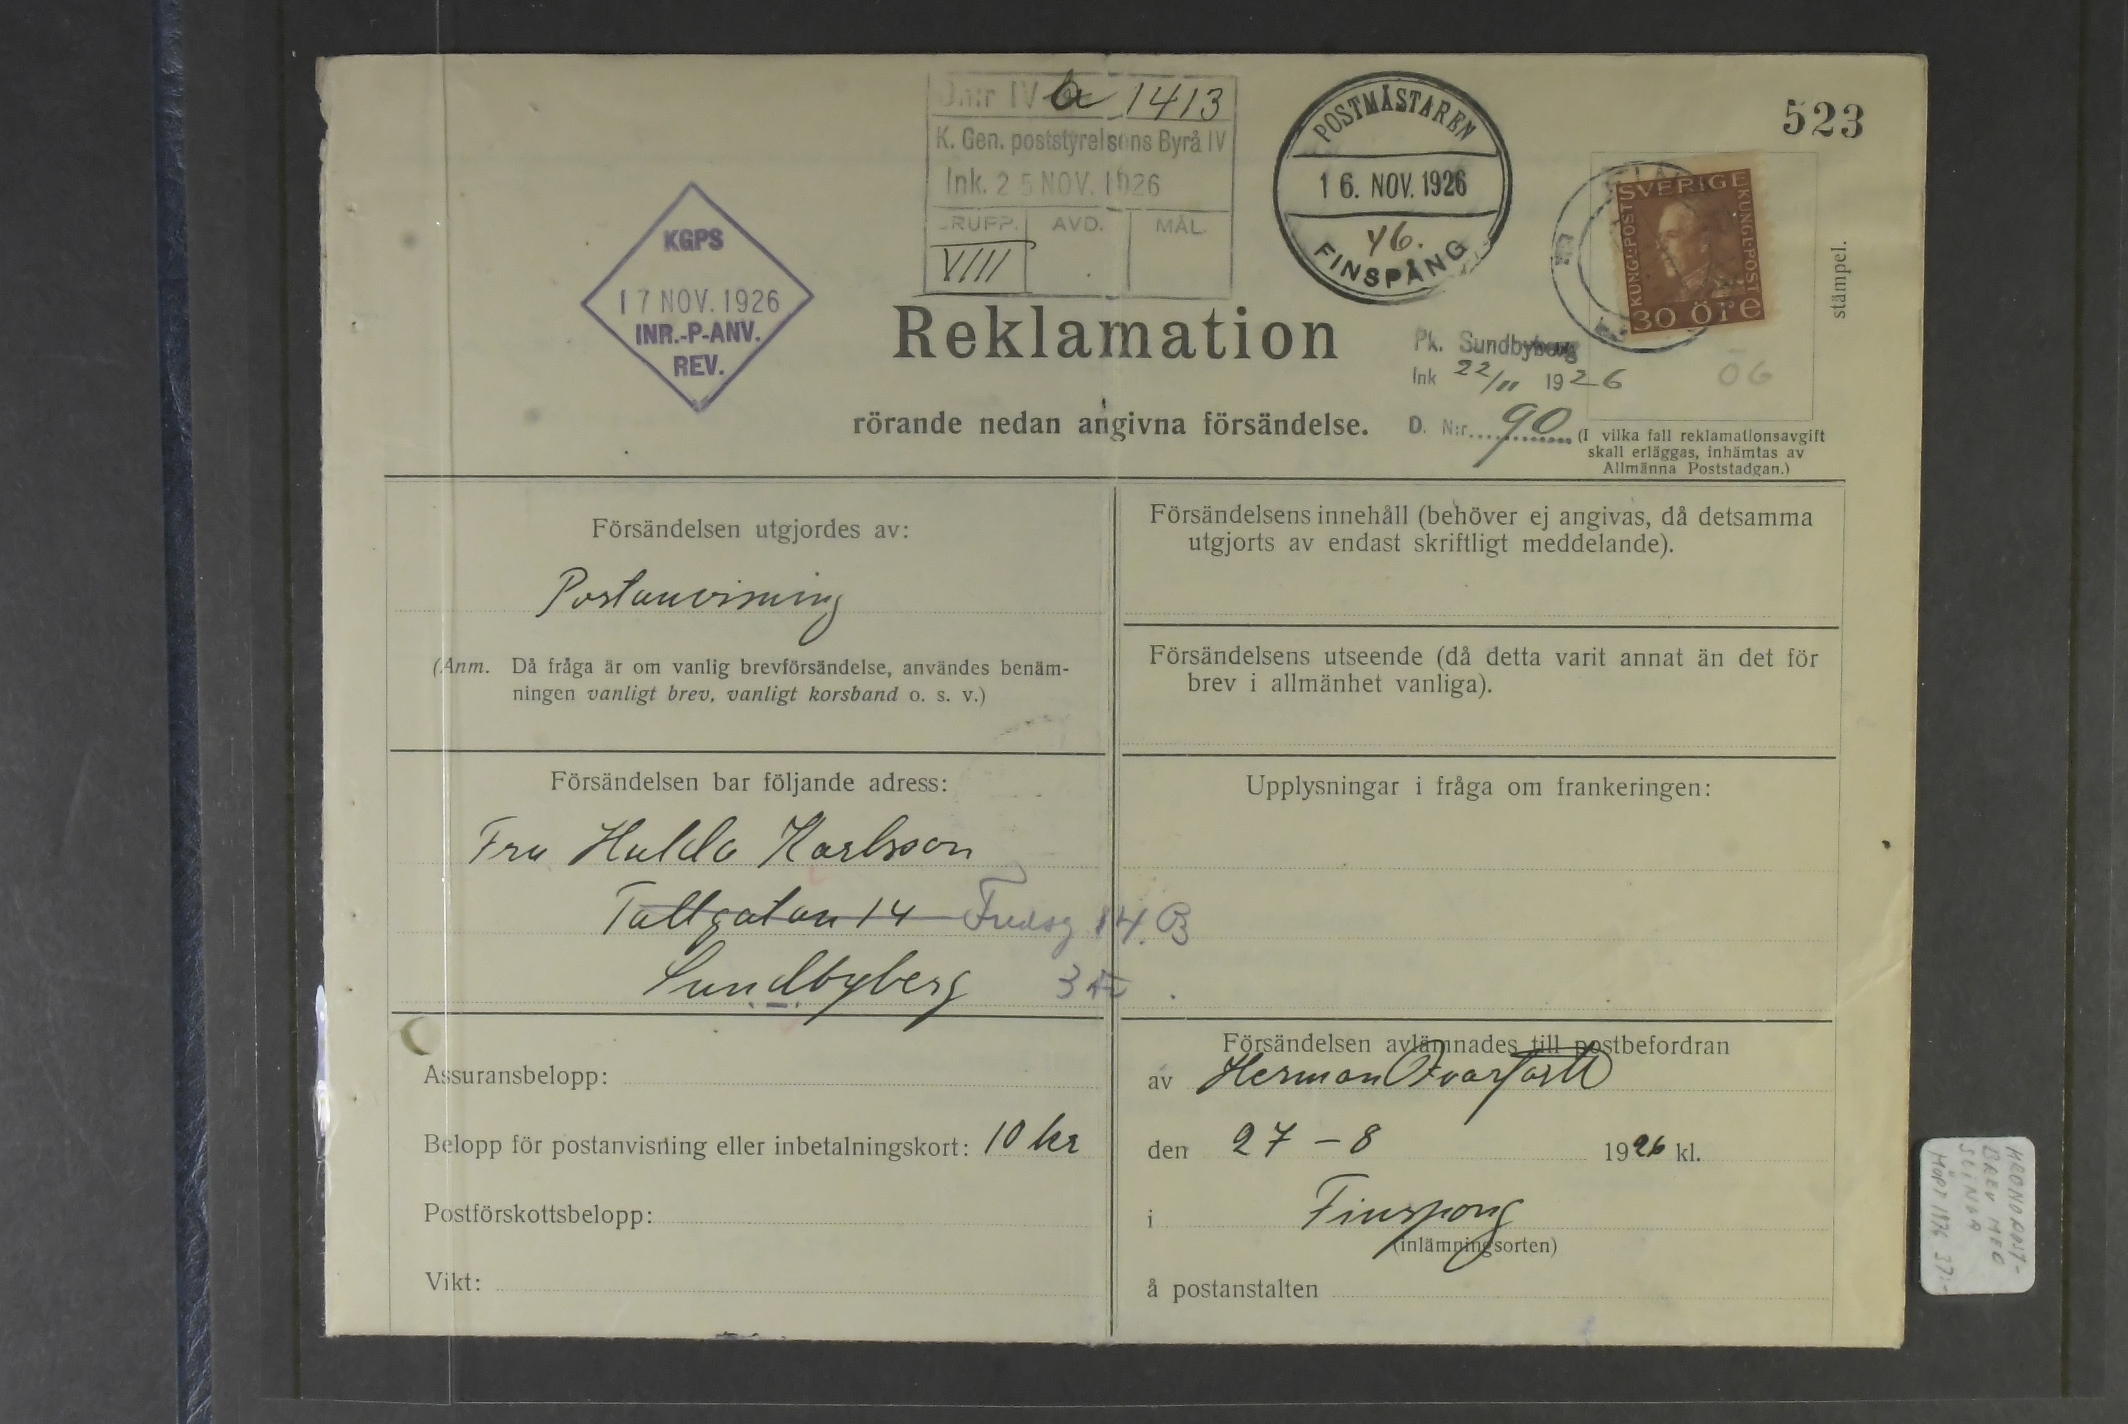 Dnr IV a 1413
K. Gen. poststyrelsens Byrå IV
Ink. 25 NOV. 1926
GRUPP. AVD. MÅL.
VIII
POSTMÄSTAREN
16. NOV. 1926
46.
FINSPÅNG
523
SVERIGE
KUNGL. POST
KUNGL. POST
30 ÖRE
stämpel.
ÖG
KGPS
17 NOV. 1926
INR.-P-ANV.
REV.
Reklamation
Pk. Sundbyberg
Ink 22/11 1926
rörande nedan angivna försändelse.
D. N:r 90
(I vilka fall reklamationsavgift
skall erläggas, inhämtas av
Allmänna Poststadgan.)
Försändelsen utgjordes av:
Postanvisning
(Anm. Då fråga är om vanlig brevförsändelse, användes benäm-
ningen vanligt brev, vanligt korsband o. s. v.)
Försändelsens innehåll (behöver ej angivas, då detsamma
utgjorts av endast skriftligt meddelande).
Försändelsens utseende (då detta varit annat än det för
brev i allmänhet vanliga).
Försändelsen bar följande adress:
Fru Hulda Karlsson
Tallgatan 14 Fredsg 14. B
Sundbyberg 3 tr
Upplysningar i fråga om frankeringen:
Assuransbelopp:
Belopp för postanvisning eller inbetalningskort: 10 kr
Postförskottsbelopp:
Vikt:
Försändelsen avlämnades till postbefordran
av Herman
den 27-8 1926 kl.
i Finspong
(inlämningsorten)
å postanstalten
BREV MED